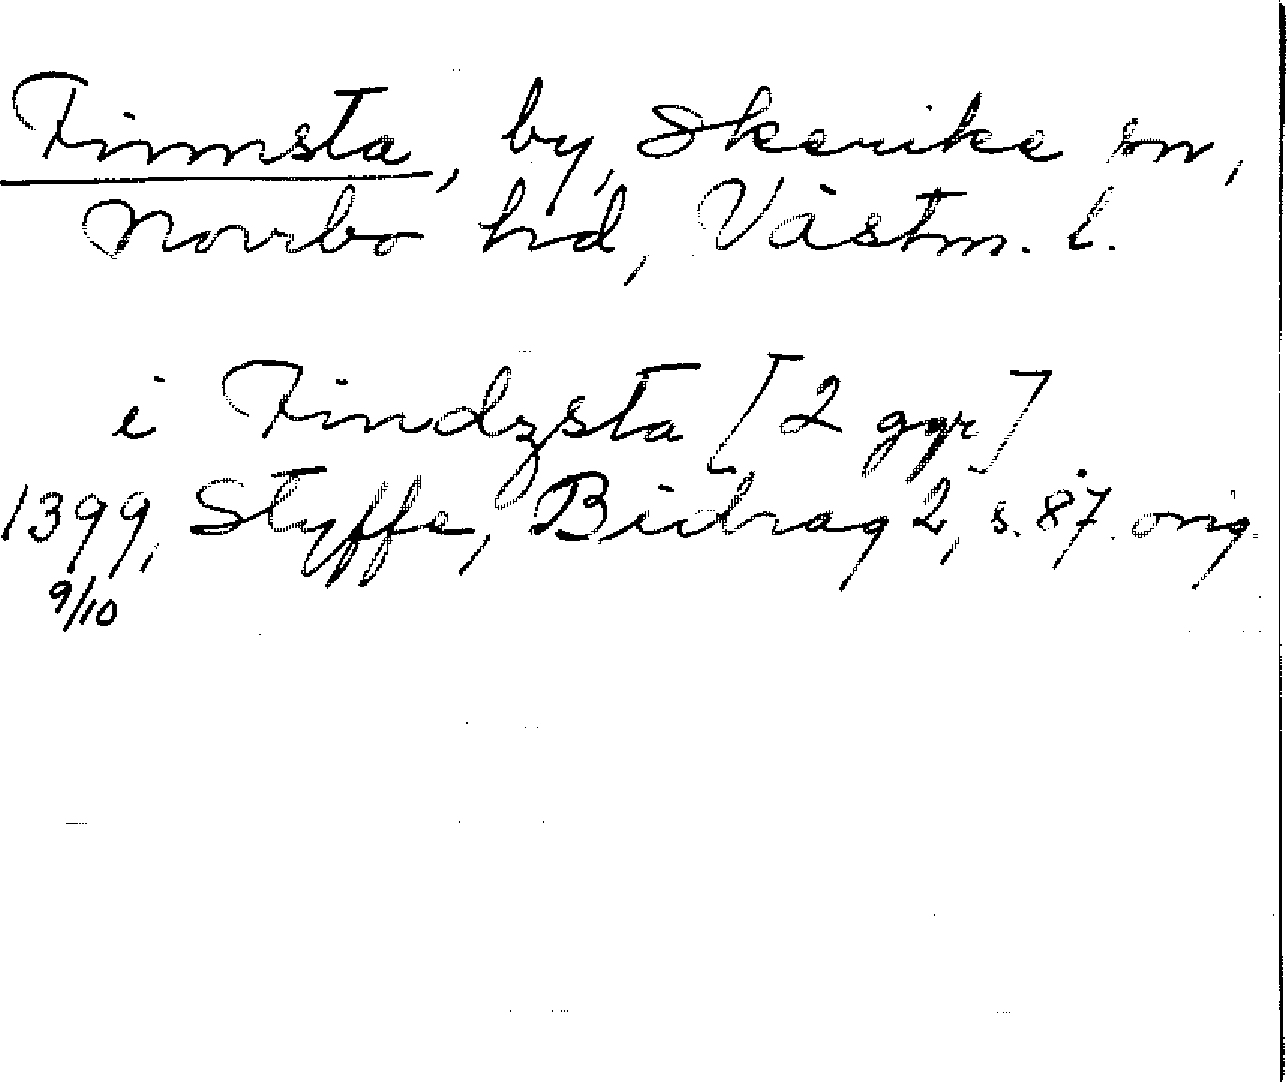 Finnsta, by, Skerike sn,
Norrbo hd, Västm. l.
i Findzsta [2 ggr]
1399, Styffe, Bidrag 2, s. 87. orig.
9/10